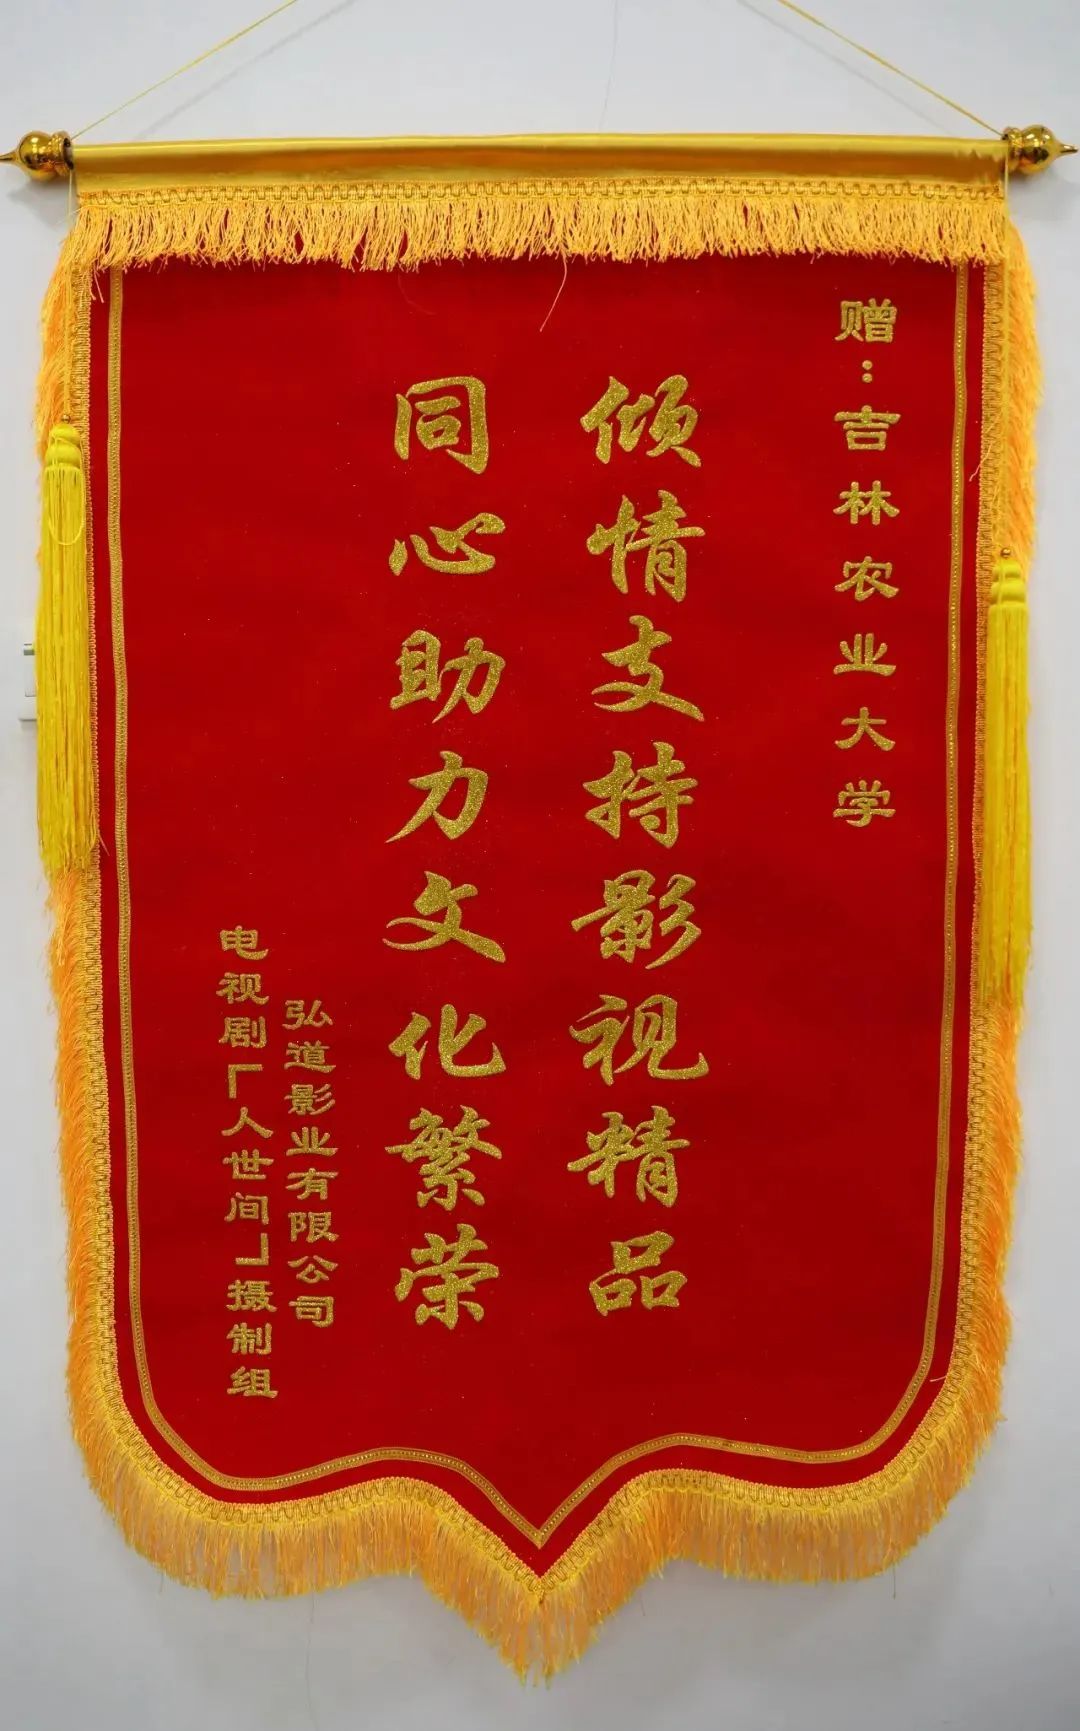 赠：吉林农业大学
倾情支持影视精品
同心助力文化繁荣
弘道影业有限公司
电视剧「人世间」摄制组